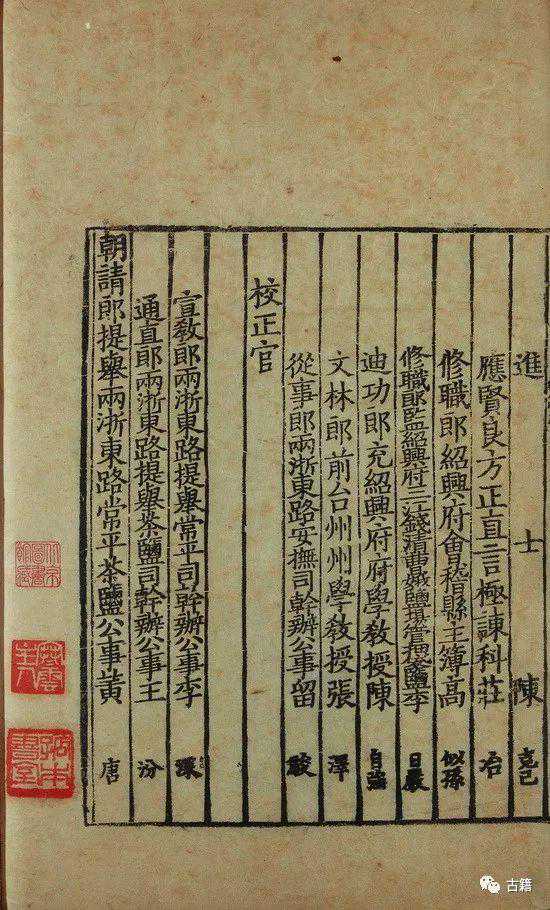 進士陳克己
應賢良方正直言極諫科莊冶
修職郎紹興府會稽縣主簿高似孫
修職郎監紹興府三江錢清曹娥鹽場管押袋鹽李日嚴
迪功郎充紹興府府學教授陳自強
文林郎前台州州學教授張澤
從事郎兩浙東路安撫司幹辦公事留駿
校正官
宣教郎兩浙東路提舉常平司幹辦公事李深
通直郎兩浙東路提舉茶鹽司幹辦公事王汾
朝請郎提舉兩浙東路常平茶鹽公事黃唐
古籍